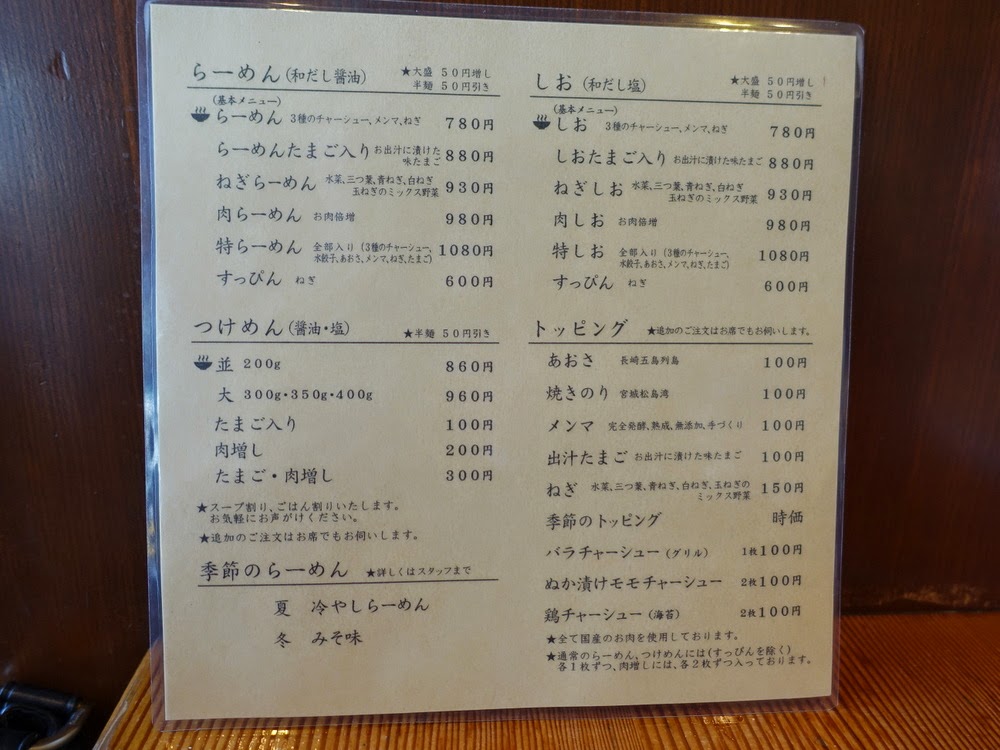 らーめん(和だし醤油) ★大盛 50円増し
半麺 50円引き
(基本メニュー)
らーめん 3種のチャーシュー、メンマ、ねぎ 780円
らーめんたまご入り お出汁に漬けた
味たまご 880円
ねぎらーめん 水菜、三つ葉、青ねぎ、白ねぎ
玉ねぎのミックス野菜 930円
肉らーめん お肉倍増 980円
特らーめん 全部入り(3種のチャーシュー、
水餃子、あおさ、メンマ、ねぎ、たまご) 1080円
すっぴん ねぎ 600円
つけめん(醤油・塩) ★半麺 50円引き
並 200g 860円
大 300g・350g・400g 960円
たまご入り 100円
肉増し 200円
たまご・肉増し 300円
★スープ割り、ごはん割りいたします。
お気軽にお声がけください。
★追加のご注文はお席でもお伺いします。
季節のらーめん ★詳しくはスタッフまで
夏 冷やしらーめん
冬 みそ味
しお(和だし塩) ★大盛 50円増し
半麺 50円引き
(基本メニュー)
しお 3種のチャーシュー、メンマ、ねぎ 780円
しおたまご入り お出汁に漬けた味たまご 880円
ねぎしお 水菜、三つ葉、青ねぎ、白ねぎ
玉ねぎのミックス野菜 930円
肉しお お肉倍増 980円
特しお 全部入り(3種のチャーシュー、
水餃子、あおさ、メンマ、ねぎ、たまご) 1080円
すっぴん ねぎ 600円
トッピング ★追加のご注文はお席でもお伺いします。
あおさ 長崎五島列島 100円
焼きのり 宮城松島湾 100円
メンマ 完全発酵、熟成、無添加、手づくり 100円
出汁たまご お出汁に漬けた味たまご 100円
ねぎ 水菜、三つ葉、青ねぎ、白ねぎ、玉ねぎの
ミックス野菜 150円
季節のトッピング 時価
バラチャーシュー(グリル) 1枚100円
ぬか漬けモモチャーシュー 2枚100円
鶏チャーシュー(海苔) 2枚100円
★全て国産のお肉を使用しております。
★通常のらーめん、つけめんには(すっぴんを除く)
各1枚ずつ、肉増しには、各2枚ずつ入っております。